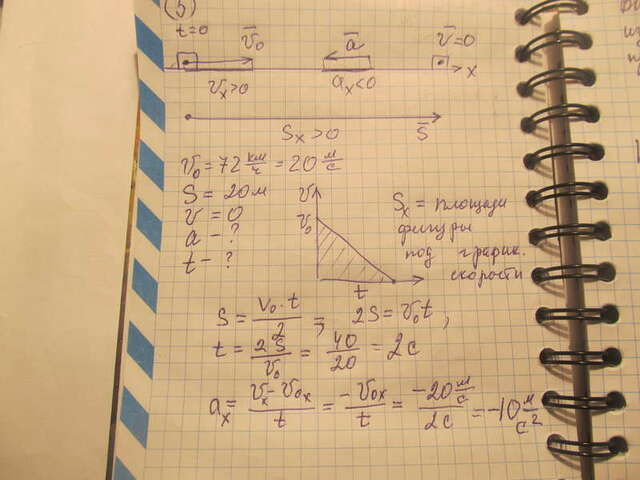 (5)
t=0
v̄₀
ā
v̄=0
vₓ>0
aₓ<0
x
Sₓ>0
S̄
v₀=72 км/ч =20 м/с
S=20м
v=0
a-?
t-?
v
v₀
t
Sₓ = площади
фигуры
под график.
скорости
S= v₀·t/2 ; 2S=v₀t,
t= 2S/v₀ = 40/20 =2с
aₓ= vₓ-v₀ₓ/t = -v₀ₓ/t = -20 м/с/2с =-10 м/с²